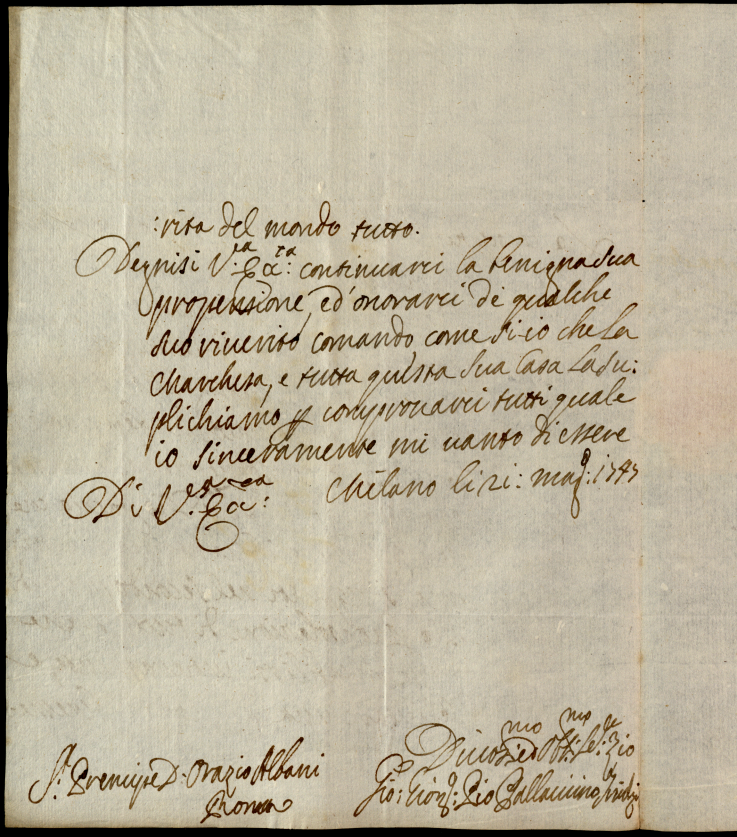 :rita del mondo tutto.
Degnisi V.ra Ecc.za: continuarci la benigna sua
propensione, ed'onorarci de qualche
suo riverito comando come si io che la
Marchesa, e tutta questa sua Casa la su:
plichiamo p comprovarci tutti quale
io sinceramente mi vanto di essere
Di V.ra Ecc.za: Milano li 21: mag.o: 1747
Divo.mo ed Obb.mo
S.r Prencipe D. Orazio Albani Gio: Pallavicino
Roma